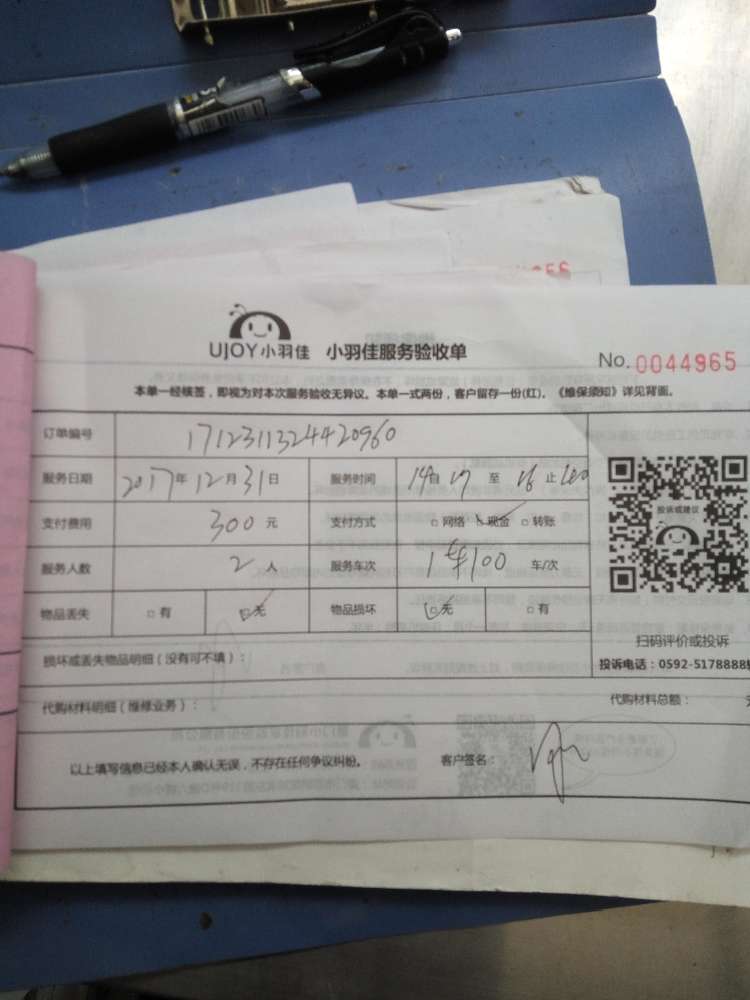 UJOY小羽佳 小羽佳服务验收单
No. 0044965
本单一经核签，即视为对本次服务验收无异议。本单一式两份，客户留存一份(红)。《维保须知》详见背面。
订单编号 1712311324420960
服务日期 2017年12月31日 服务时间 14自17 至 16止
支付费用 300元 支付方式 □网络 □现金 □转账
投诉或建议
服务人数 2人 服务车次 1车100 车/次
物品丢失 □有 □无 物品损坏 □无 □有
扫码评价或投诉
损坏或丢失物品明细（没有可不填）：
投诉电话：0592-5178888
代购材料明细（维修业务）： 代购材料总额：
以上填写信息已经本人确认无误，不存在任何争议纠纷。 客户签名：